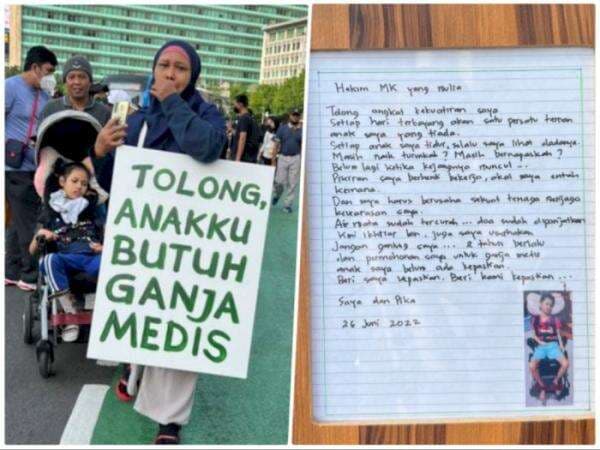 TOLONG,
ANAKKU
BUTUH
GANJA
MEDIS
Hakim MK yang mulia
Tolong angkat kekuatiran saya
Setiap hari terbayang akan satu persatu teman
anak saya yang tiada.
Setiap anak saya tidur, selalu saya lihat dadanya.
Masih naik turunkah? Masih bernafaskah?
Belum lagi ketika kejangnya muncul...
Pikiran saya berhenti bekerja, akal saya entah
kemana.
Dan saya harus berusaha sekuat tenaga menjaga
kewarasan saya.
Air mata sudah tercurah... doa sudah dipanjatkan
Kini ikhtiar lain, juga saya usahakan
Jangan gantung saya... 2 tahun berlalu
dan permohonan saya untuk ganja medis
anak saya belum ada kepastian.
Beri saya kepastian. Beri kami kepastian...
Saya dan Pika
26 Juni 2022